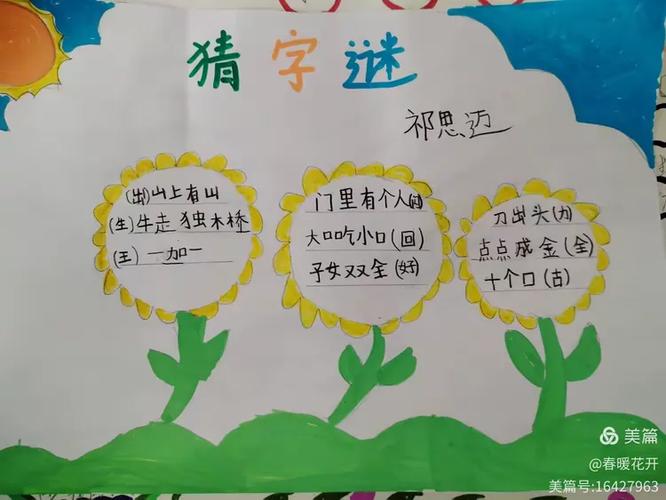 猜字谜
祁思迈
(出)山上有山
(生)牛走独木桥
(王)一加一
门里有个人(闪)
大口吃小口(回)
子女双全(好)
刀出头(力)
点点成金(全)
十个口(古)
美篇
@春暖花开
美篇号:16427963